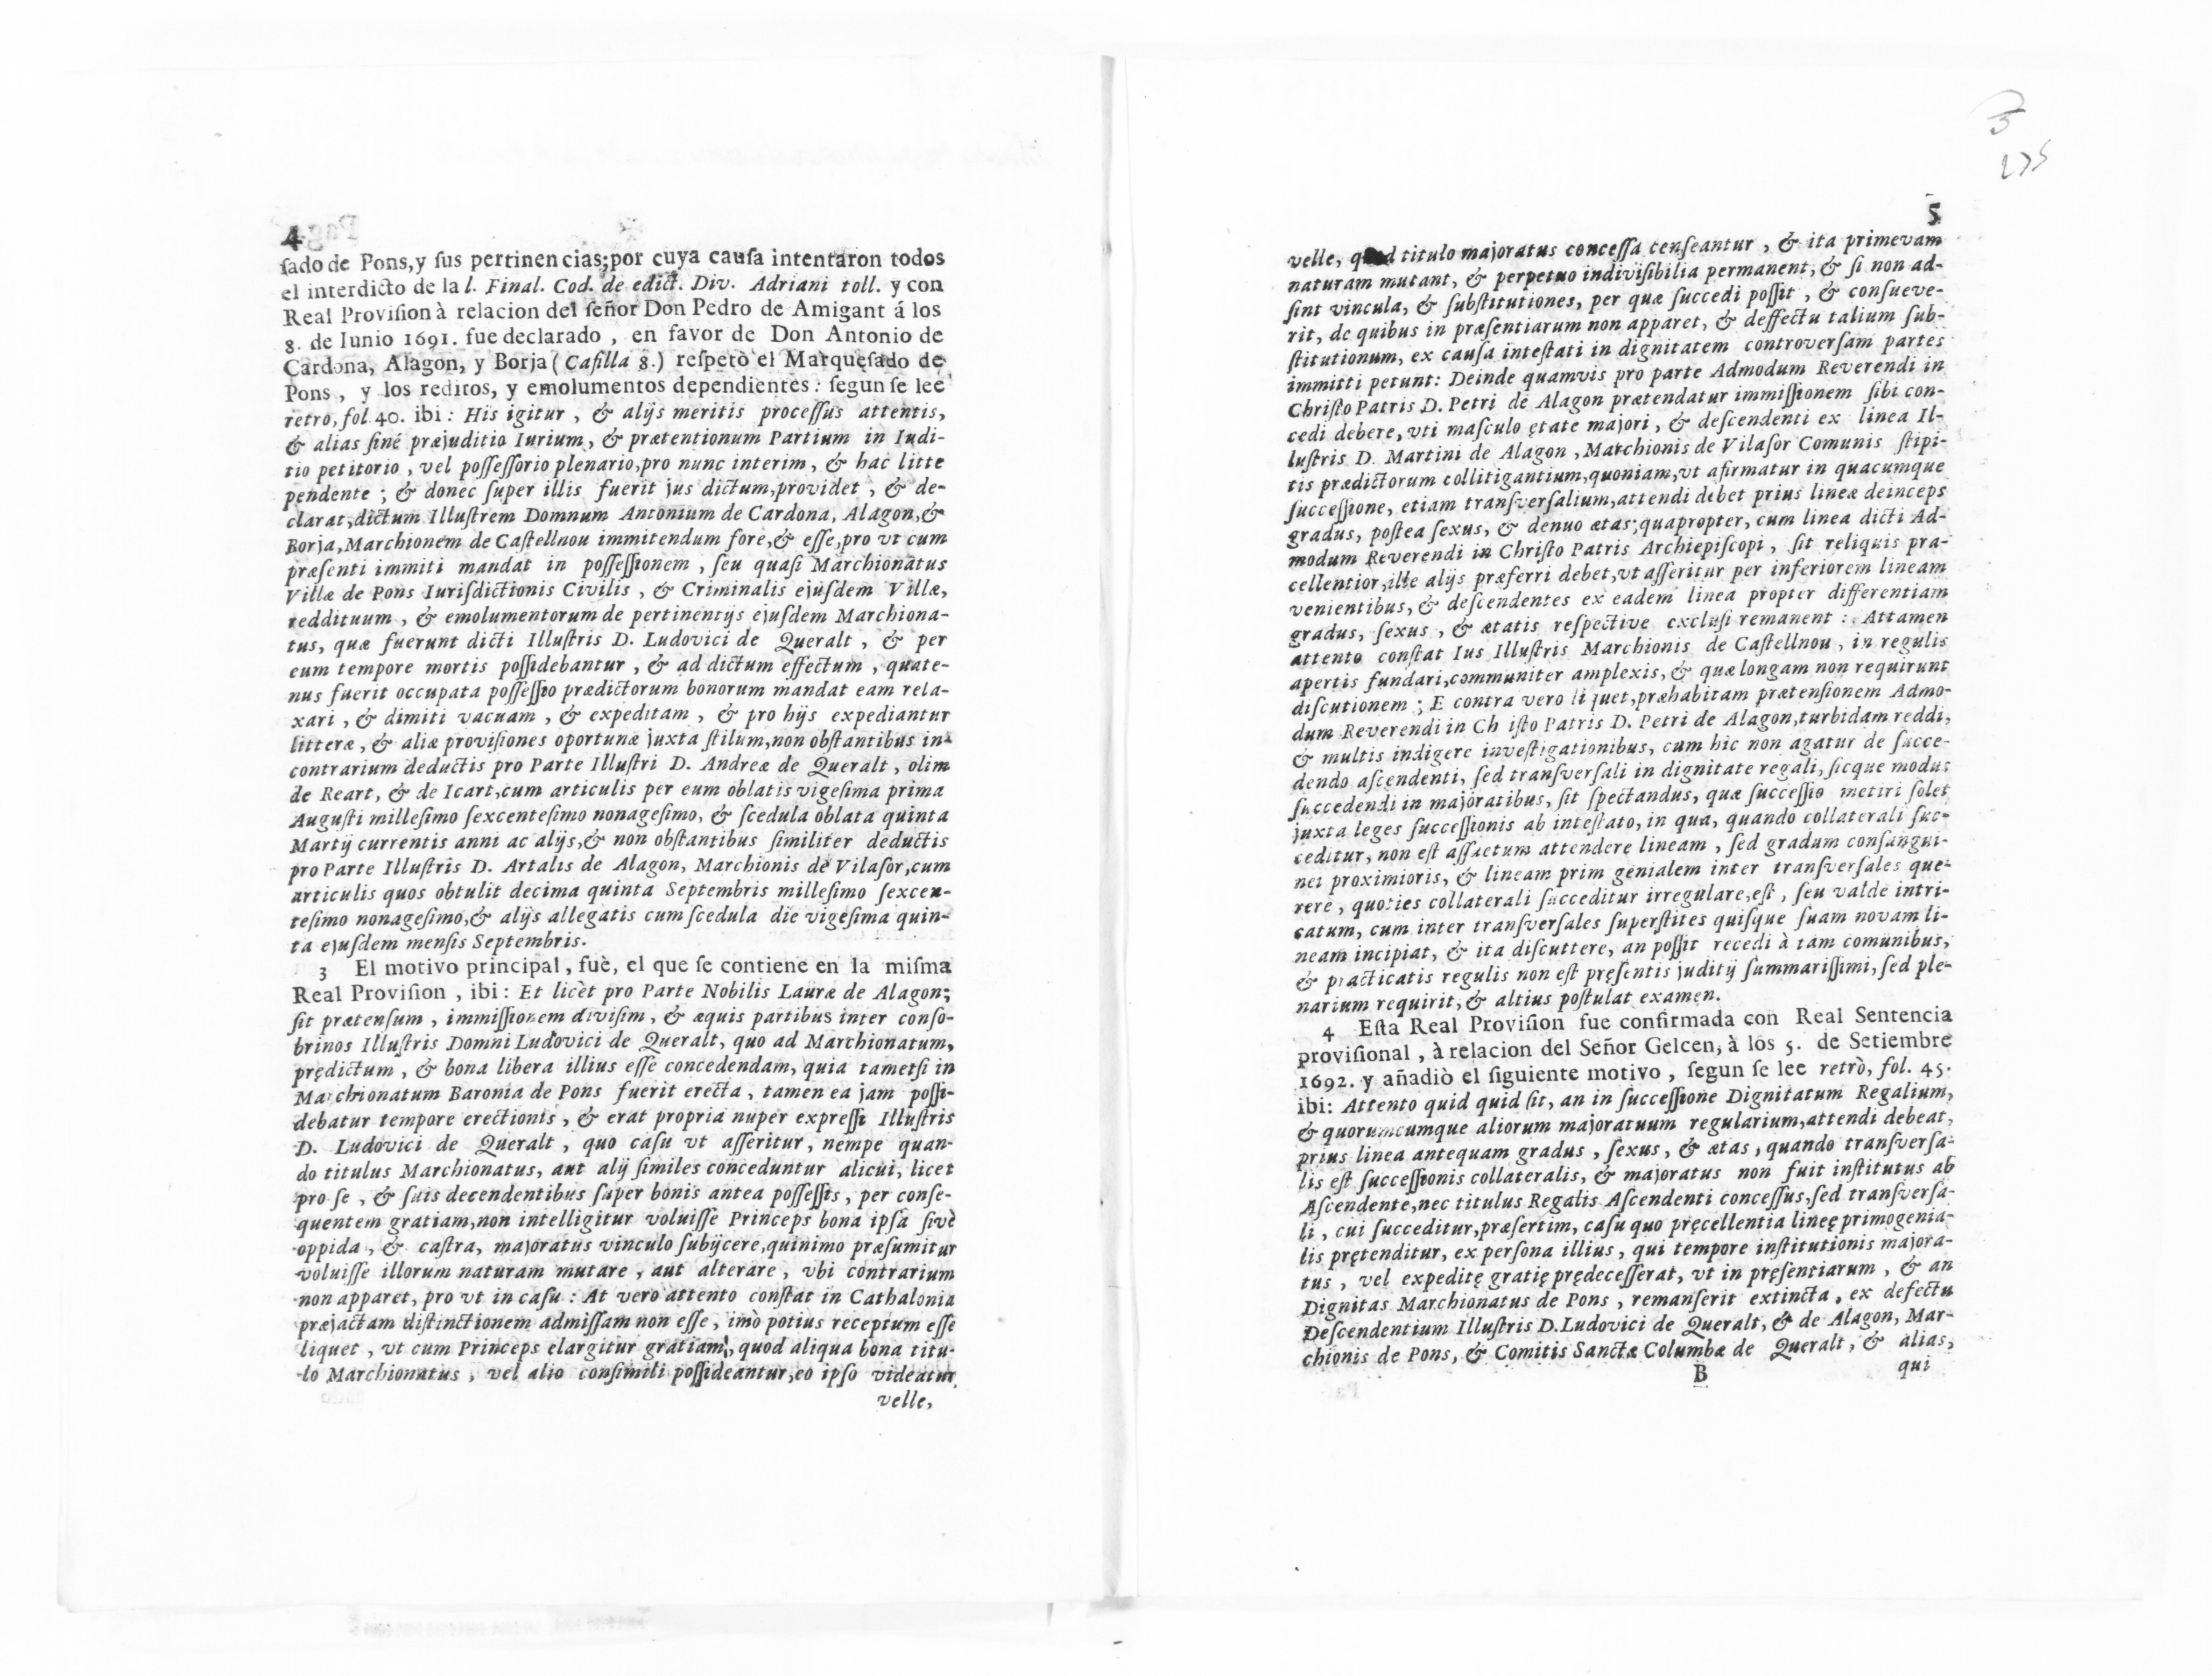 4
ſado de Pons, y ſus pertinencias; por cuya cauſa intentaron todos
el interdicto de la l. Final. Cod. de edict. Div. Adriani toll. y con
Real Proviſion à relacion del ſeñor Don Pedro de Amigant á los
8. de Iunio 1691. fue declarado, en favor de Don Antonio de
Cardona, Alagon, y Borja (Caſilla 8.) reſpetò el Marqueſado de
Pons, y los reditos, y emolumentos dependientes: ſegun ſe lee
retro, fol. 40. ibi: His igitur, & alijs meritis proceſſus attentis,
& alias ſiné præjuditio Iurium, & prætentionum Partium in Iudi-
tio petitorio, vel poſſeſſorio plenario, pro nunc interim, & hac litte
pendente; & donec ſuper illis fuerit jus dictum, providet, & de-
clarat, dictum Illuſtrem Domnum Antonium de Cardona, Alagon, &
Borja, Marchionem de Caſtellnou immitendum fore, & eſſe, pro vt cum
præſenti immiti mandat in poſſeſſionem, ſeu quaſi Marchionatus
Villæ de Pons Iuriſdictionis Civilis, & Criminalis ejuſdem Villæ,
reddituum, & emolumentorum de pertinentijs ejuſdem Marchiona-
tus, quæ fuerunt dicti Illuſtris D. Ludovici de Queralt, & per
eum tempore mortis poſſidebantur, & ad dictum effectum, quate-
nus fuerit occupata poſſeſſio prædictorum bonorum mandat eam rela-
xari, & dimiti vacuam, & expeditam, & pro hijs expediantur
litteræ, & aliæ proviſiones oportunæ juxta ſtilum, non obſtantibus in-
contrarium deductis pro Parte Illuſtri D. Andreæ de Queralt, olim
de Reart, & de Icart, cum articulis per eum oblatis vigeſima prima
Auguſti milleſimo ſexcenteſimo nonageſimo, & ſcedula oblata quinta
Martij currentis anni ac alijs, & non obſtantibus ſimiliter deductis
pro Parte Illuſtris D. Artalis de Alagon, Marchionis de Vilaſor, cum
articulis quos obtulit decima quinta Septembris milleſimo ſexcen-
teſimo nonageſimo, & alijs allegatis cum ſcedula die vigeſima quin-
ta ejuſdem menſis Septembris.
3 El motivo principal, fuè, el que ſe contiene en la miſma
Real Proviſion, ibi: Et licèt pro Parte Nobilis Lauræ de Alagon;
ſit prætenſum, immiſſionem diviſim, & æquis partibus inter conſo-
brinos Illuſtris Domni Ludovici de Queralt, quo ad Marchionatum,
prędictum, & bona libera illius eſſe concedendam, quia tametſi in
Marchionatum Baronia de Pons fuerit erecta, tamen ea jam poſſi-
debatur tempore erectionis, & erat propria nuper expreſſi Illuſtris
D. Ludovici de Queralt, quo caſu vt aſſeritur, nempe quan-
do titulus Marchionatus, aut alij ſimiles conceduntur alicui, licet
pro ſe, & ſuis decendentibus ſuper bonis antea poſſeſſis, per conſe-
quentem gratiam, non intelligitur voluiſſe Princeps bona ipſa ſivè
oppida, & caſtra, majoratus vinculo ſubijcere, quinimo præſumitur
voluiſſe illorum naturam mutare, aut alterare, vbi contrarium
non apparet, pro vt in caſu: At verò attento conſtat in Cathalonia
præjactam diſtinctionem admiſſam non eſſe, imò potius receptum eſſe
liquet, vt cum Princeps elargitur gratiam, quod aliqua bona titu-
lo Marchionatus, vel alio conſimili poſſideantur, eo ipſo videatur
velle,
5
velle, quod titulo majoratus conceſſa cenſeantur, & ita primevam
naturam mutant, & perpetuo indiviſibilia permanent, & ſi non ad-
ſint vincula, & ſubſtitutiones, per quæ ſuccedi poſſit, & conſueve-
rit, de quibus in præſentiarum non apparet, & deffectu talium ſub-
ſtitutionum, ex cauſa inteſtati in dignitatem controverſam partes
immitti petunt: Deinde quamvis pro parte Admodum Reverendi in
Chriſto Patris D. Petri de Alagon prætendatur immiſſionem ſibi con-
cedi debere, vti maſculo ętate majori, & deſcendenti ex linea Il-
luſtris D. Martini de Alagon, Marchionis de Vilaſor Comunis ſtipi-
tis prædictorum collitigantium, quoniam, vt afirmatur in quacumque
ſucceſſione, etiam tranſverſalium, attendi debet prius lineæ deinceps
gradus, poſtea ſexus, & denuo ætas; quapropter, cum linea dicti Ad-
modum Reverendi in Chriſto Patris Archiepiſcopi, ſit reliquis præ-
cellentior, ille alijs præferri debet, vt aſſeritur per inferiorem lineam
venientibus, & deſcendentes ex eadem linea propter differentiam
gradus, ſexus, & ætatis reſpective excluſi remanent: Attamen
attento conſtat Ius Illuſtris Marchionis de Caſtellnou, in regulis
apertis fundari, communiter amplexis, & quæ longam non requirunt
diſcutionem; E contra vero liquet, præhabitam prætenſionem Admo-
dum Reverendi in Chriſto Patris D. Petri de Alagon, turbidam reddi,
& multis indigere inveſtigationibus, cum hic non agatur de ſucce-
dendo aſcendenti, ſed tranſverſali in dignitate regali, ſicque modus
ſuccedendi in majoratibus, ſit ſpectandus, quæ ſucceſſio metiri ſolet
juxta leges ſucceſſionis ab inteſtato, in qua, quando collaterali ſuc-
ceditur, non eſt aſſuetum attendere lineam, ſed gradum conſangui-
nei proximioris, & lineam prim genialem inter tranſverſales que-
rere, quoties collaterali ſucceditur irregulare, eſt, ſeu valdè intri-
catum, cum inter tranſverſales ſuperſtites quiſque ſuam novam li-
neam incipiat, & ita diſcuttere, an poſſit recedi à tam comunibus,
& practicatis regulis non eſt pręſentis juditij ſummariſſimi, ſed ple-
narium requirit, & altius poſtulat examen.
4 Eſta Real Proviſion fue confirmada con Real Sentencia
proviſional, à relacion del Señor Gelcen, à los 5. de Setiembre
1692. y añadiò el ſiguiente motivo, ſegun ſe lee retrò, fol. 45.
ibi: Attento quid quid ſit, an in ſucceſſione Dignitatum Regalium,
& quorumcumque aliorum majoratuum regularium, attendi debeat,
prius linea antequam gradus, ſexus, & ætas, quando tranſverſa-
lis eſt ſucceſſionis collateralis, & majoratus non fuit inſtitutus ab
Aſcendente, nec titulus Regalis Aſcendenti conceſſus, ſed tranſverſa-
li, cui ſucceditur, præſertim, caſu quo pręcellentia lineę primogenia-
lis prętenditur, ex perſona illius, qui tempore inſtitutionis majora-
tus, vel expeditę gratię prędeceſſerat, vt in pręſentiarum, & an
Dignitas Marchionatus de Pons, remanſerit extincta, ex defectu
Deſcendentium Illuſtris D. Ludovici de Queralt, & de Alagon, Mar-
chionis de Pons, & Comitis Sanctæ Columbæ de Queralt, & alias,
B
qui